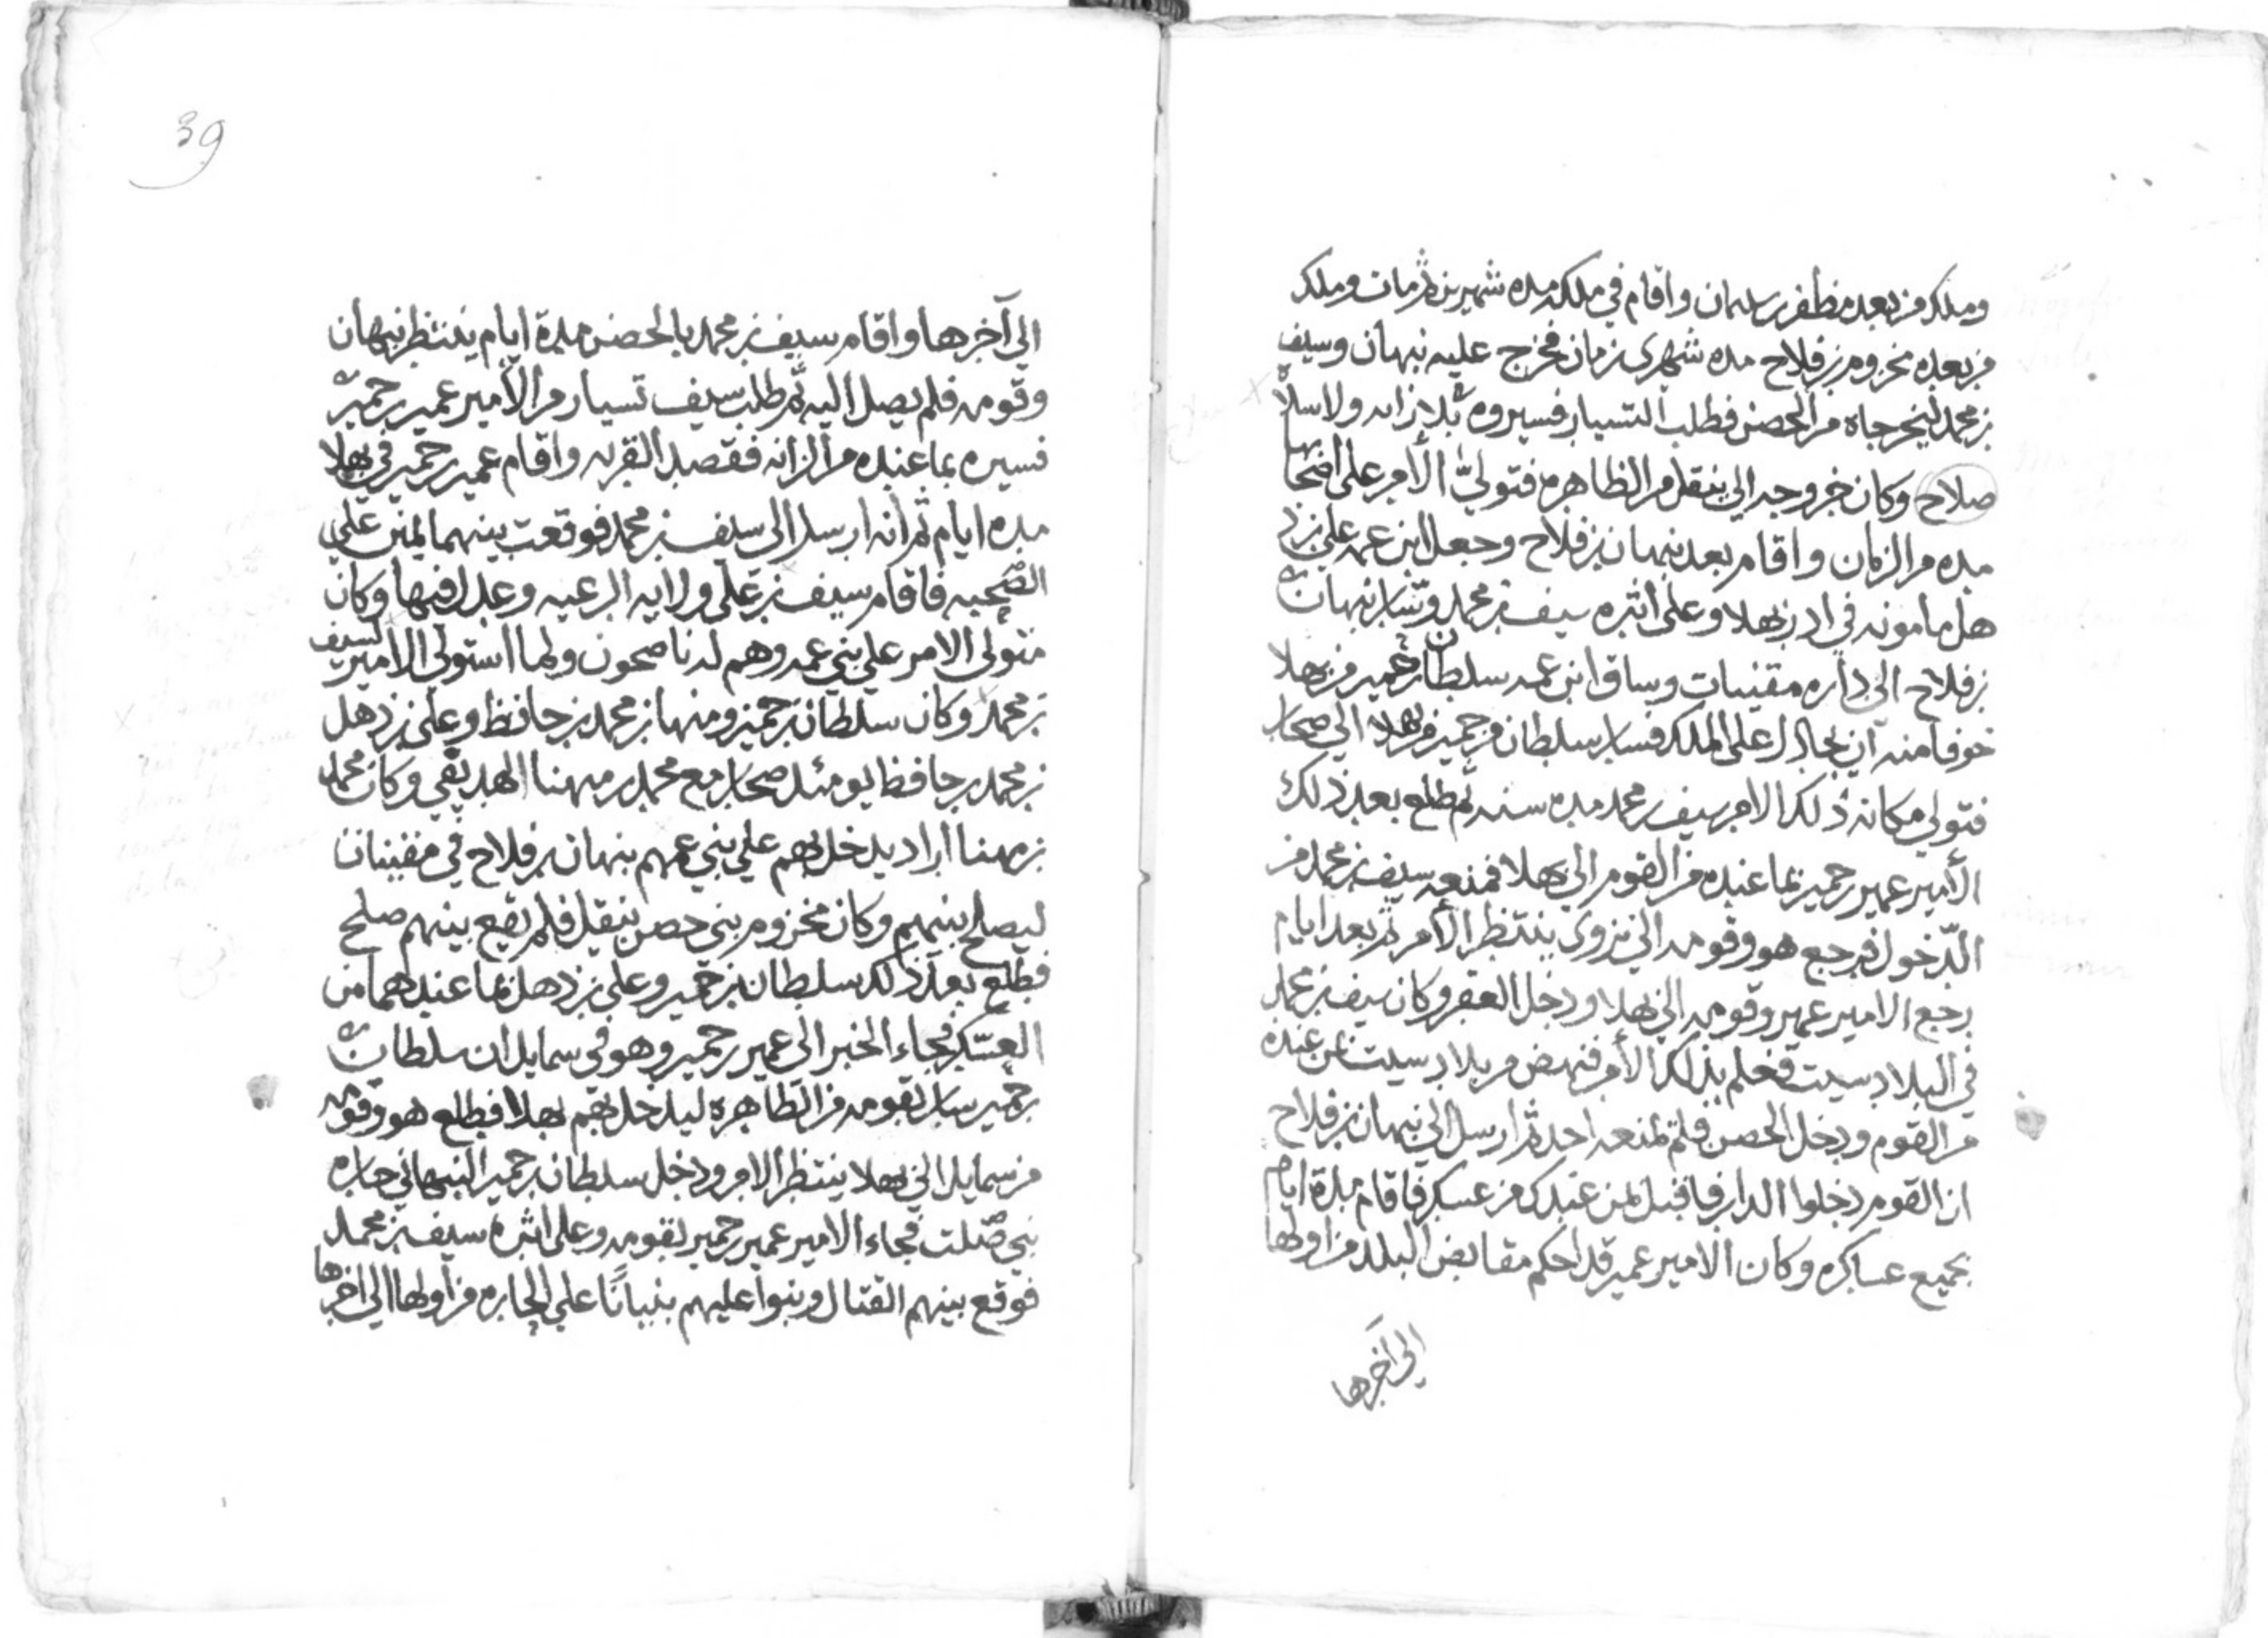 وملك من بعده مظفر بن سلمان واقام في ملكه مده شهرين ثم مات وملك
من بعده مخزوم بن فلاح مده شهرى زمان فخرج عليه نبهان وسيف
بن محمد ليخرجاه من الحصن فطلب التسيار فسيروه بلا زانه ولا سلا
صلاح وكان خروجه الى ينقل من الظاهره فتولىّ الأمر على
مده من الزمان واقام بعد نبهان بن فلاح وجعل ابن عمه على بن ذ
هل مامونه في ادر بهلا وعلى اثره سيف بن محمد وسار نبهان
بن فلاح الى داره مقنيات وساق ابن عمه سلطان بن حمير من بهلا
خوفا منه ان يجادل على الملك فسار سلطان بن حمير من بهلا الى صحار
فتولى مكانه ذلك الامر سيف بن محمد مده سنه ثم طلع بعد ذلك
الأمير عمير بن حمير بما عنده من القوم الى بهلا فمنعه سيف بن محمد من
الدّخول فرجع هو وقومه الى نزوى ينتظر الأمر ثم بعد ايام
رجع الامير عمير وقومه الى بهلا ودخل العقر وكان سيف بن محمد
في البلاد سيت فعلم بذلك الأمر فنهض من بلاد سيت بمن عنده
من القوم ودخل الحصن فلم يمنعه احد ثم ارسل الى نبهان بن فلاح
ان القوم دخلوا الدار فاقبل بمن عندك من عسكر فاقام مدة ايام
بجميع عساكره وكان الامير عمير قد احكم مقابض البلد من اولها
الى آخرها
39
الى آخرها واقام سيف بن محمد بالحصن مدة ايام ينتظر نبهان
وقومه فلم يصل اليه ثم طلب سيف تسيار من الأمير عمير بن حمير
فسيره بما عنده من الزانه فقصد القريه واقام عمير بن حمير في بهلا
مده ايام ثم انه ارسل الى سيف بن محمد فوقعت بينهما يمين على
الصحبه فاقام سيف بن على ولايه الرعيه وعدل فيها وكان
متولى الامر على بني عمه وهم له ناصحون ولما استولى الامير لسيف
بن محمد وكان سلطان بن حمير ومنهنا بن محمد بن حافظ وعلى بن ذهل
بن محمد بن حافظ يومئذ صحار مع محمد بن مهنا الهديفي وكان محمد
بن مهنا اراد يدخل بهم على بني عمهم نبهان بن فلاح في مقنيات
ليصلح بينهم وكان مخزوم بنى حصن ينقل فلم يقع بينهم صلح
فطلع بعد ذلك سلطان بن حمير وعلى بن ذهل بما عندهما من
العسّكر فجاء الخبر الى عمير بن حمير وهو في سمايل ان سلطان
بن حمير سار بقومه من الظاهره ليدخل بهم بهلا فطلع هو وقومه
من سمايل الى بهلا ينتظر الامر ودخل سلطان بن حمير النبهاني حاره
بني صلت فجاء الامير عمير بن حمير بقومه وعلى اثره سيف بن محمد
فوقع بينهم القتال وبنوا عليهم بنيانًا على الحاره من اولها الى اخرها